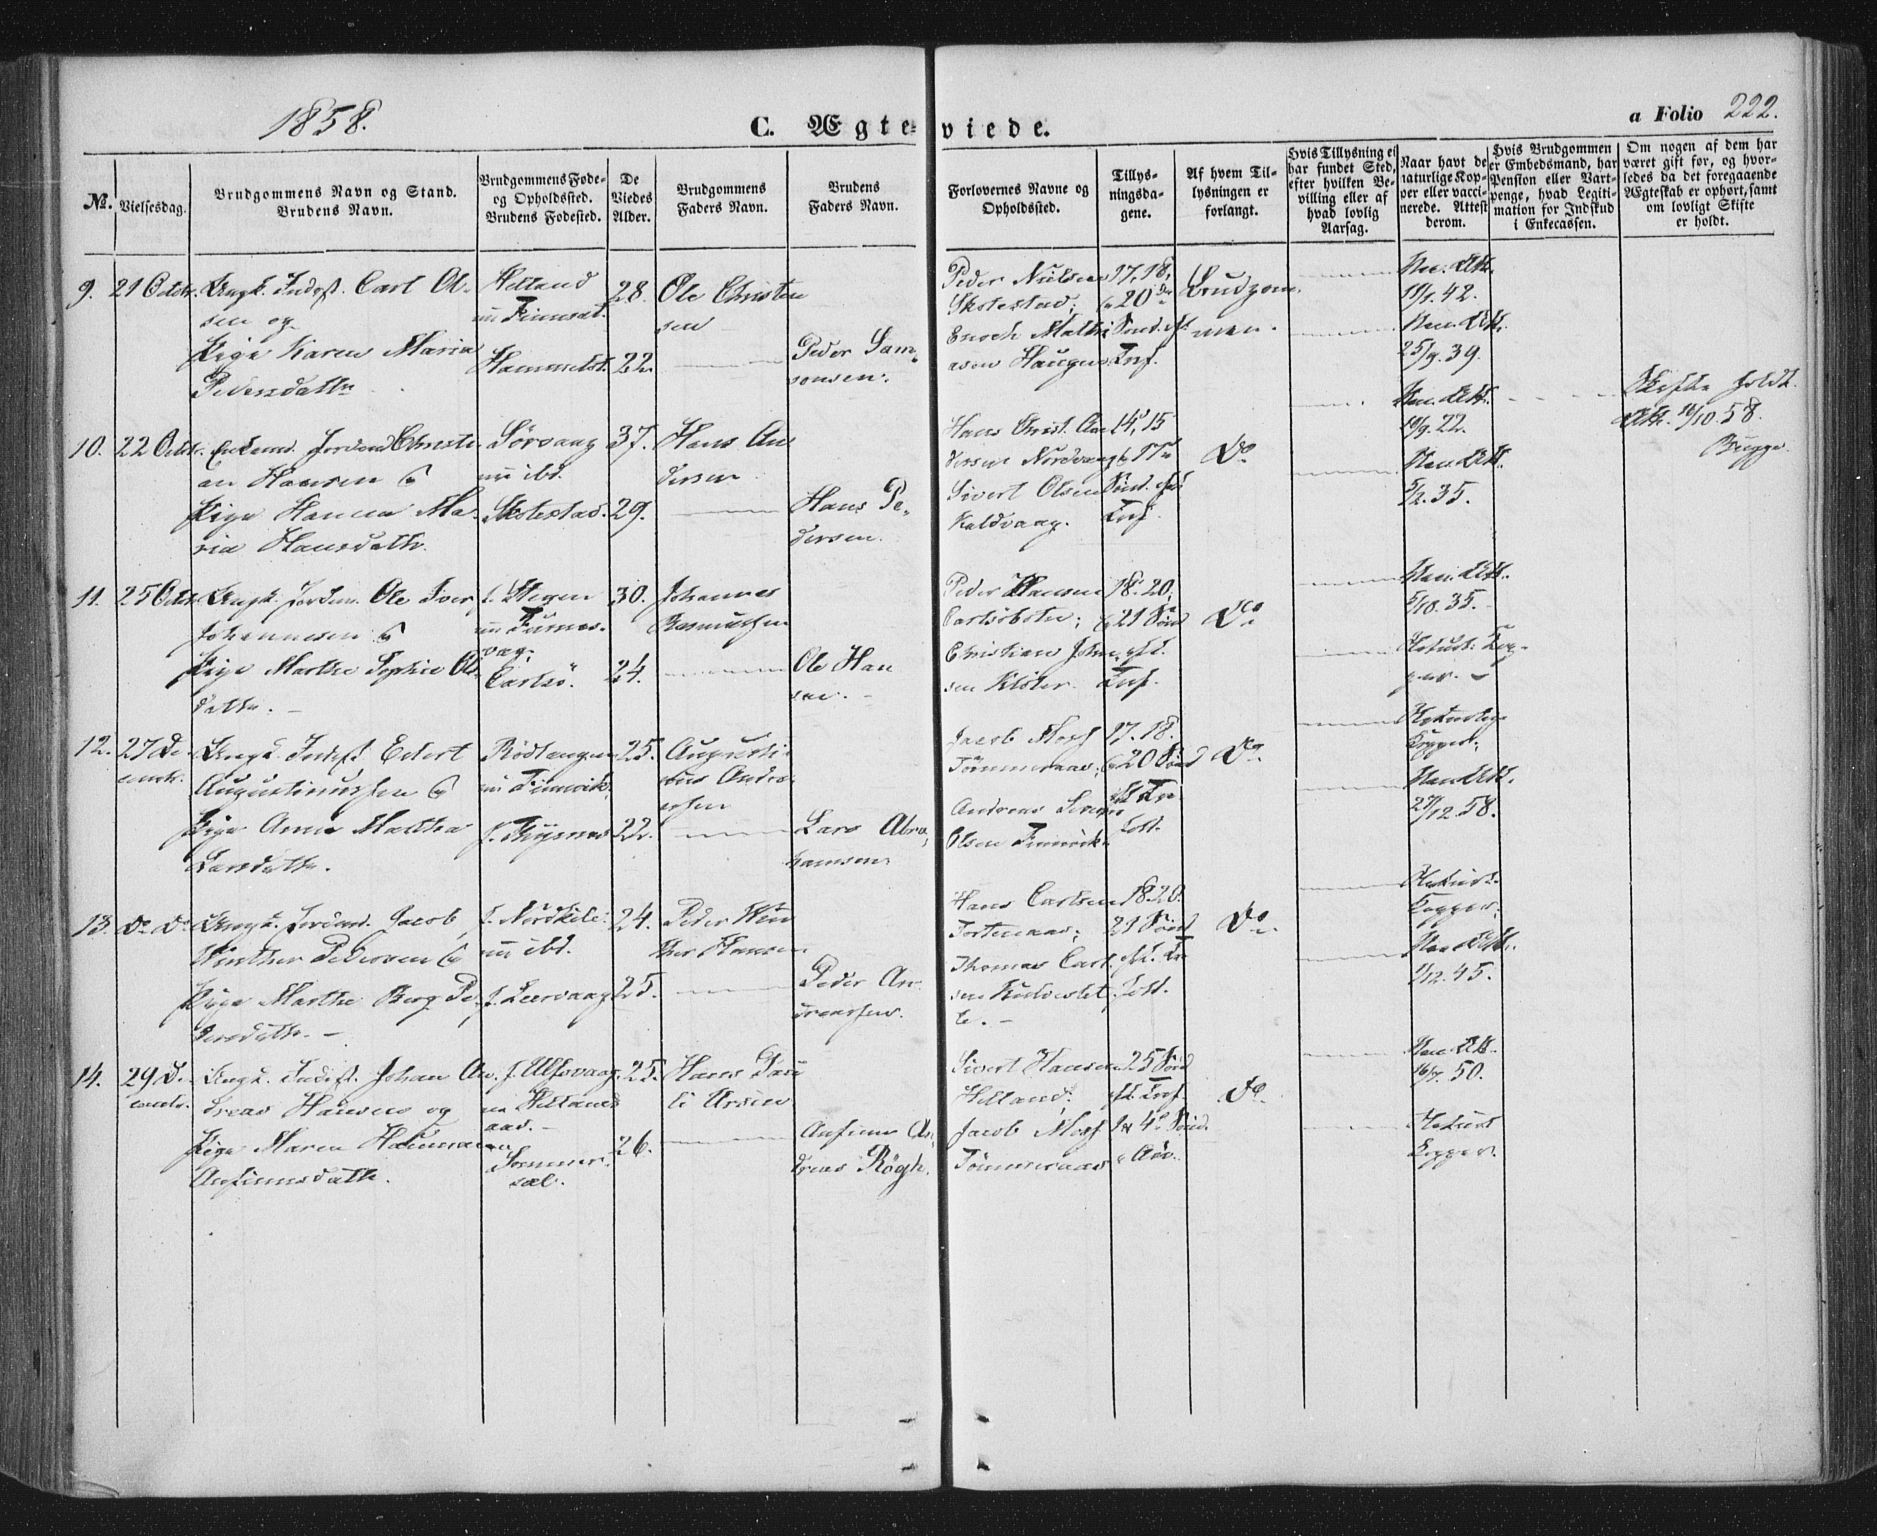 1858.
C. Ægteviede.
a Folio 222.
№.
Vielsesdag.
Brudgommens Navn og Stand.
Brudens Navn.
Brudgommens Føde-
og Opholdssted.
Brudens Fødested.
De
Viedes
Alder.
Brudgommens
Faders Navn.
Brudens
Faders Navn.
Forlovernes Navne og
Opholdssted.
Tillys-
ningsda-
gene.
Af hvem Til-
lysningen er
forlangt.
Hvis Tillysning ei
har fundet Sted,
efter hvilken Be-
villing eller af
hvad lovlig
Aarsag.
Naar havt de
naturlige Kop-
per eller vacci-
nerede. Attest
derom.
Hvis Brudgommen
er Embedsmand, har
Pension eller Vart-
penge, hvad Legiti-
mation for Indskud
i Enkecassen.
Om nogen af dem har
været gift før, og hvor-
ledes da det foregaaende
Ægteskab er ophørt, samt
om lovligt Skifte
er holdt.
9. 21 Octbr. Ungk. Indst. Carl Ol-
sen og
Pige Karen Maria
Pedersdattr
Helland
Hammelst.
28.
22.
Ole Christen
sen
Peder Sam,
sonsen.
Peder Nielsen
Skotestad;
Enoch Mathi
asen Haugen
17, 18,
20de
Sønd. eft
Trf.
Brudgom-
men.
Vac. Att.
18/9. 42.
Vac. Att.
25/9. 39.
10. 22 Octbr. Enkemd. Jordem. Christi
an Hansen &
Pige Hanna Ma-
ria Hansdattr.
Sørvaag
nu ibd.
Skotestad.
37.
29.
Hans An
dersen
Hans Pe,
dersen.
Hans Christ. An
dersen Nordvaag
Sivert Olsen
Kaldvaag.
14, 15
& 17de
Sønd. eft
Trf.
Do
Vac. Att.
19/9. 22.
Vac. Att.
5/2. 35.
Skifte holdt.
Att. 16/10. 58.
Bugge.
11. 25 Octbr Ungk. Jordm. Ole Iver
Johannesen &
Pige Marthe Sophie Ols
dattr.
f. Stegen
vaag.
Carlsö.
30.
24.
Johannes
Rasmussen
Ole Han
sen.
Peder Hansen
Carlsöboten;
Christian Johan
sen Kloter.
18. 20,
& 21 Sønd
eft.
Trf.
Do
Vac. Att.
5/10. 35.
Naturl. Kop-
per.
12. 27 De-
cembr. Ungk. Indst Edert
Augustinussen &
Pige Anne Martha
Larsdattr.
Rödtangen
nu Finnvik.
25.
22.
Augusti
nus Andre
assen
Lars Abra,
hamsen
Jacob Mosf
Tömmeraas;
Andreas Sevrin
Olsen Finnvik.
17. 18.
& 20 Sønd
Do
Naturlige
Kopper.
Vac. Att.
27/12. 58.
13. Do Do Ungk. Jordm. Jacob
Winther Pedersen &
Pige Marthe Berg Pe
dersdattr.
f. Nordkile
nu ibd.
f. Leervaag
24.
25.
Peder Win
ther Hansen
Peder An-
dreassen.
Hans Carlsen
Fortenaas;
Thomas Carl-
sen
18. 20.
21 Sønd
eft. Tr
Do
Naturl.
Kopper.
Vac. Att.
1/12. 45.
14. 29 De-
cembr. Ungk. Indst. Johan An-
dreas Hansen og
Pige Maren Hanna
Anfinnsdattr.
f. Ulfsvaag
nu Hellands
aas.
Sommer
sæl.
25.
26.
Hans Pau
li Ursin
Anfinn An
dreas Røgh.
Sivert Hansen
Helland;
Jacob Mosf
Tömmeraas
25 Sønd
eft. Trf.
4de Sønd.
Adv.
Do
Vac. Att.
16/7. 50.
Naturl
Kopper.